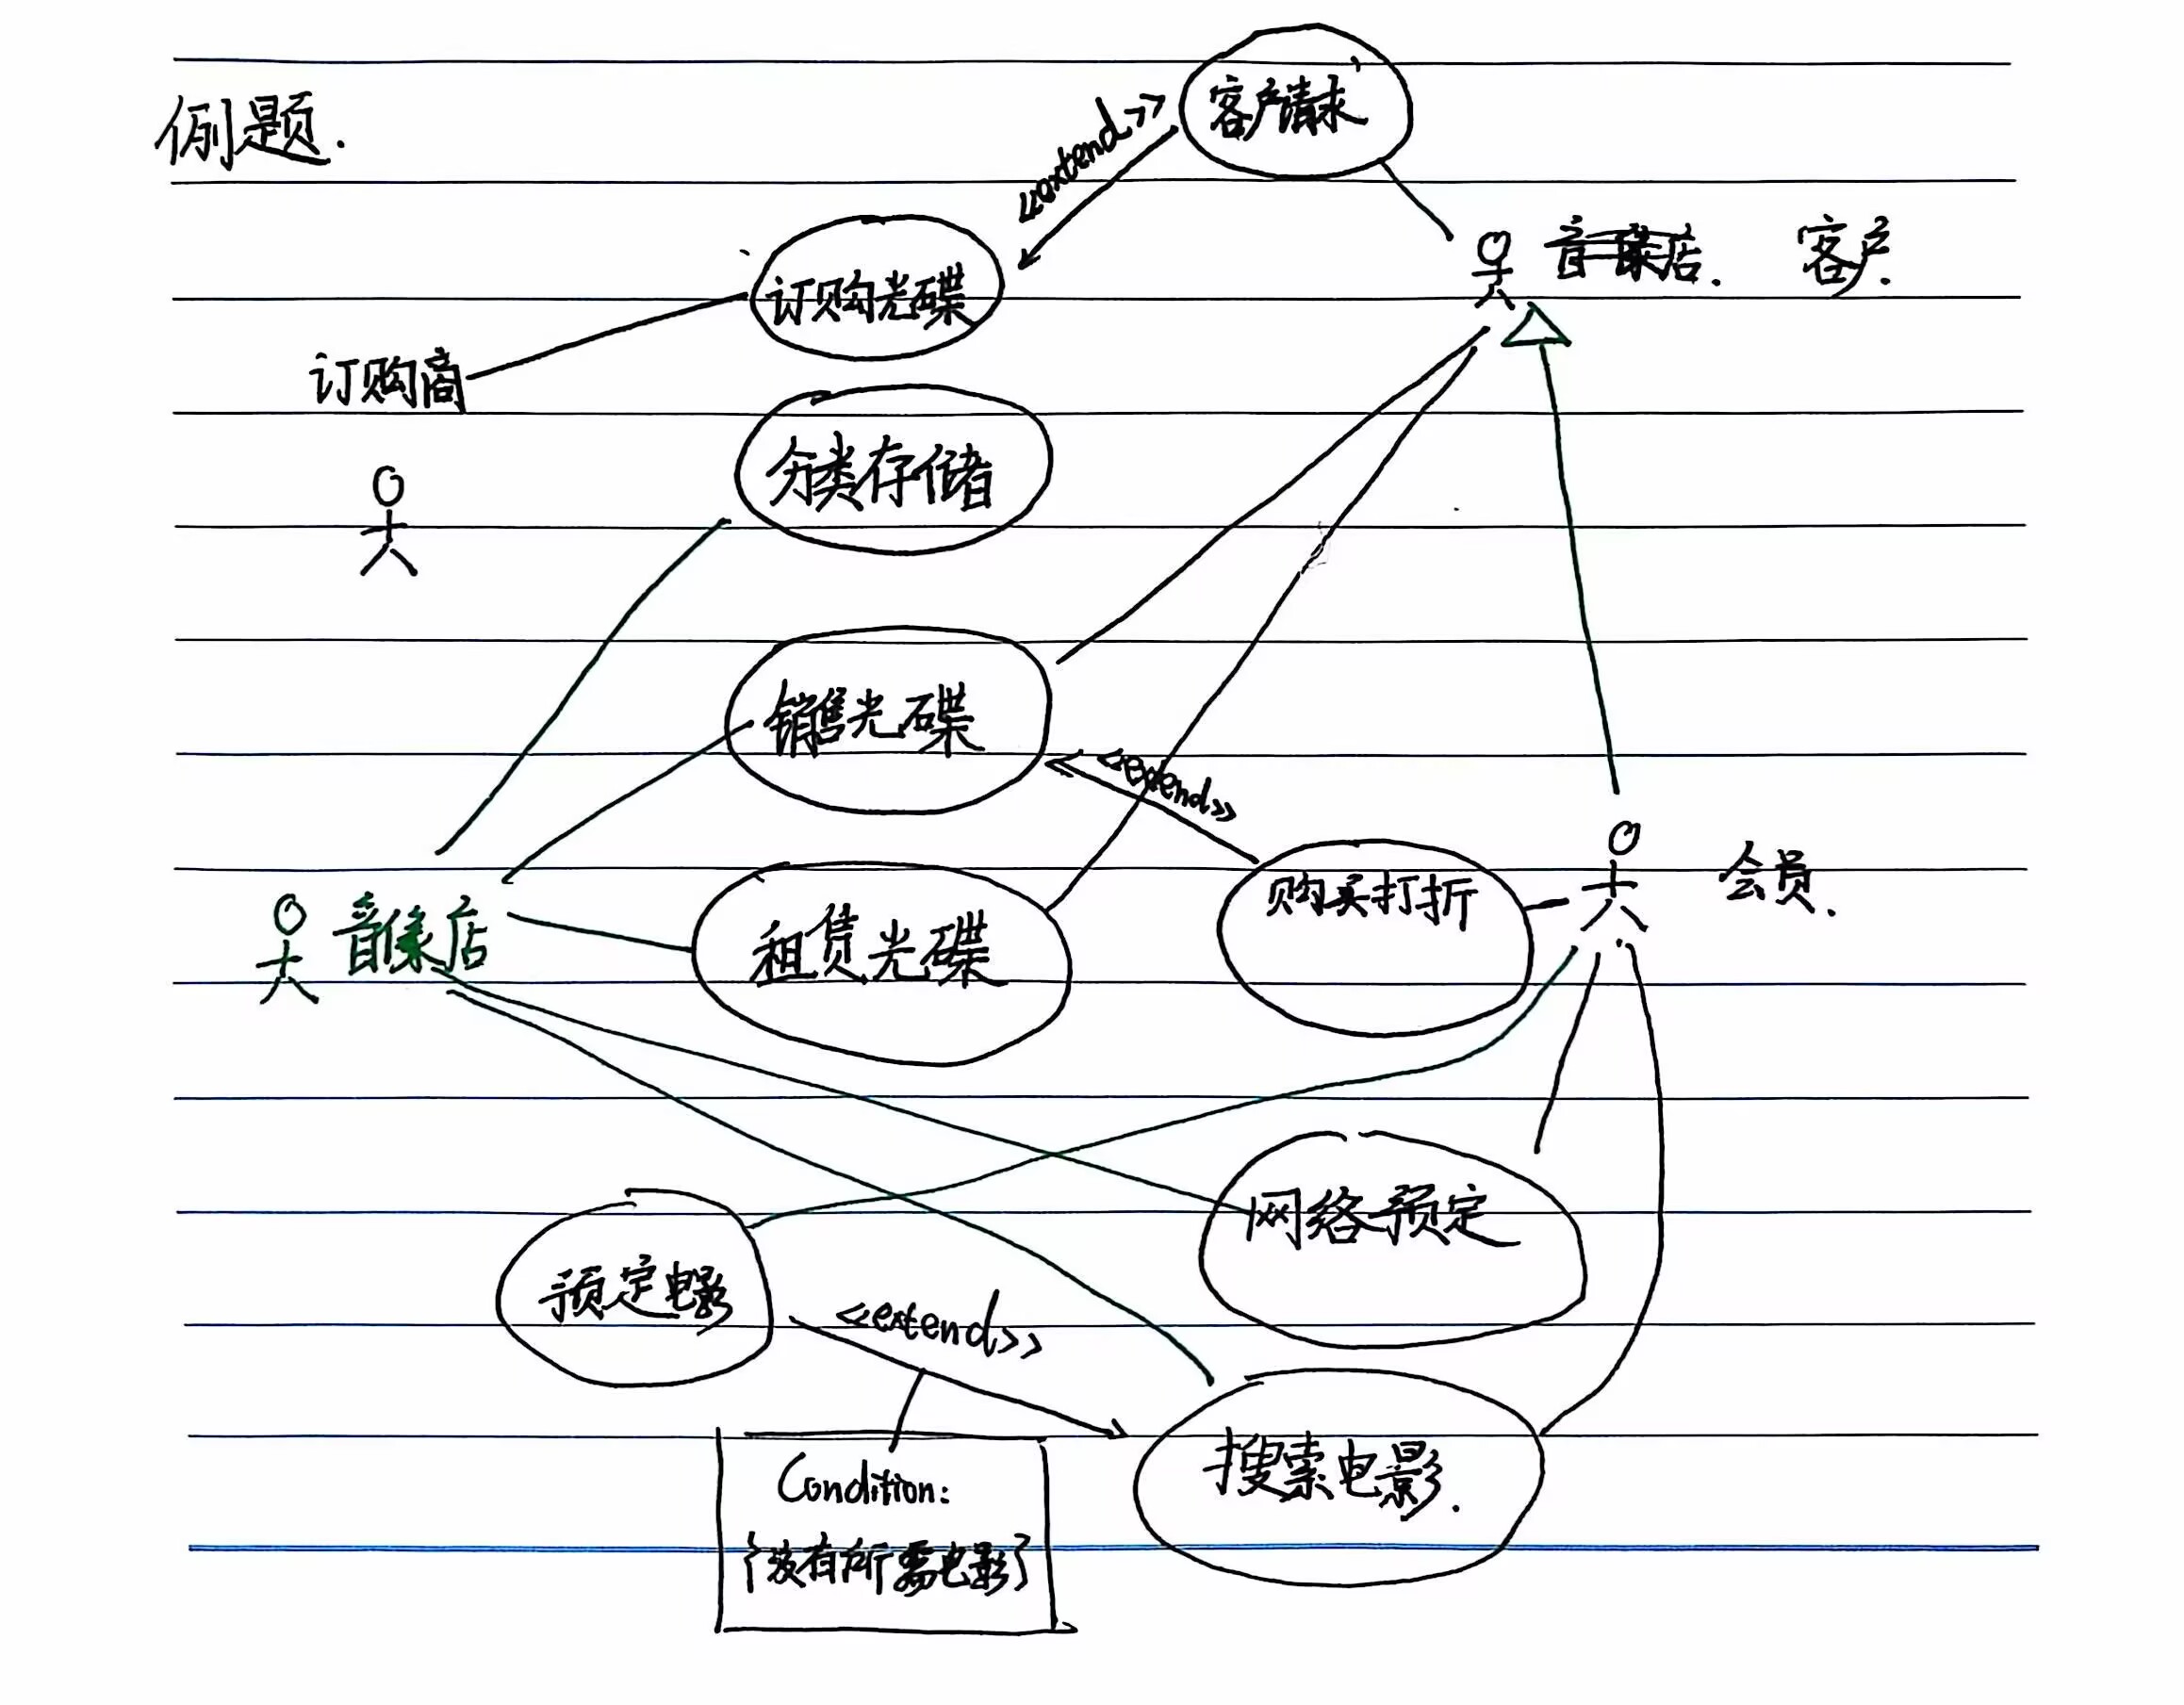 例题.
客户请求
<<extend>>
音像店. 客户.
订购光碟
订购商
分类存储
销售光碟
<<extend>>
购买打折
会员.
音像店
租赁光碟
网络预定
预定电影
<<extend>>
搜索电影.
Condition:
{没有所需电影}